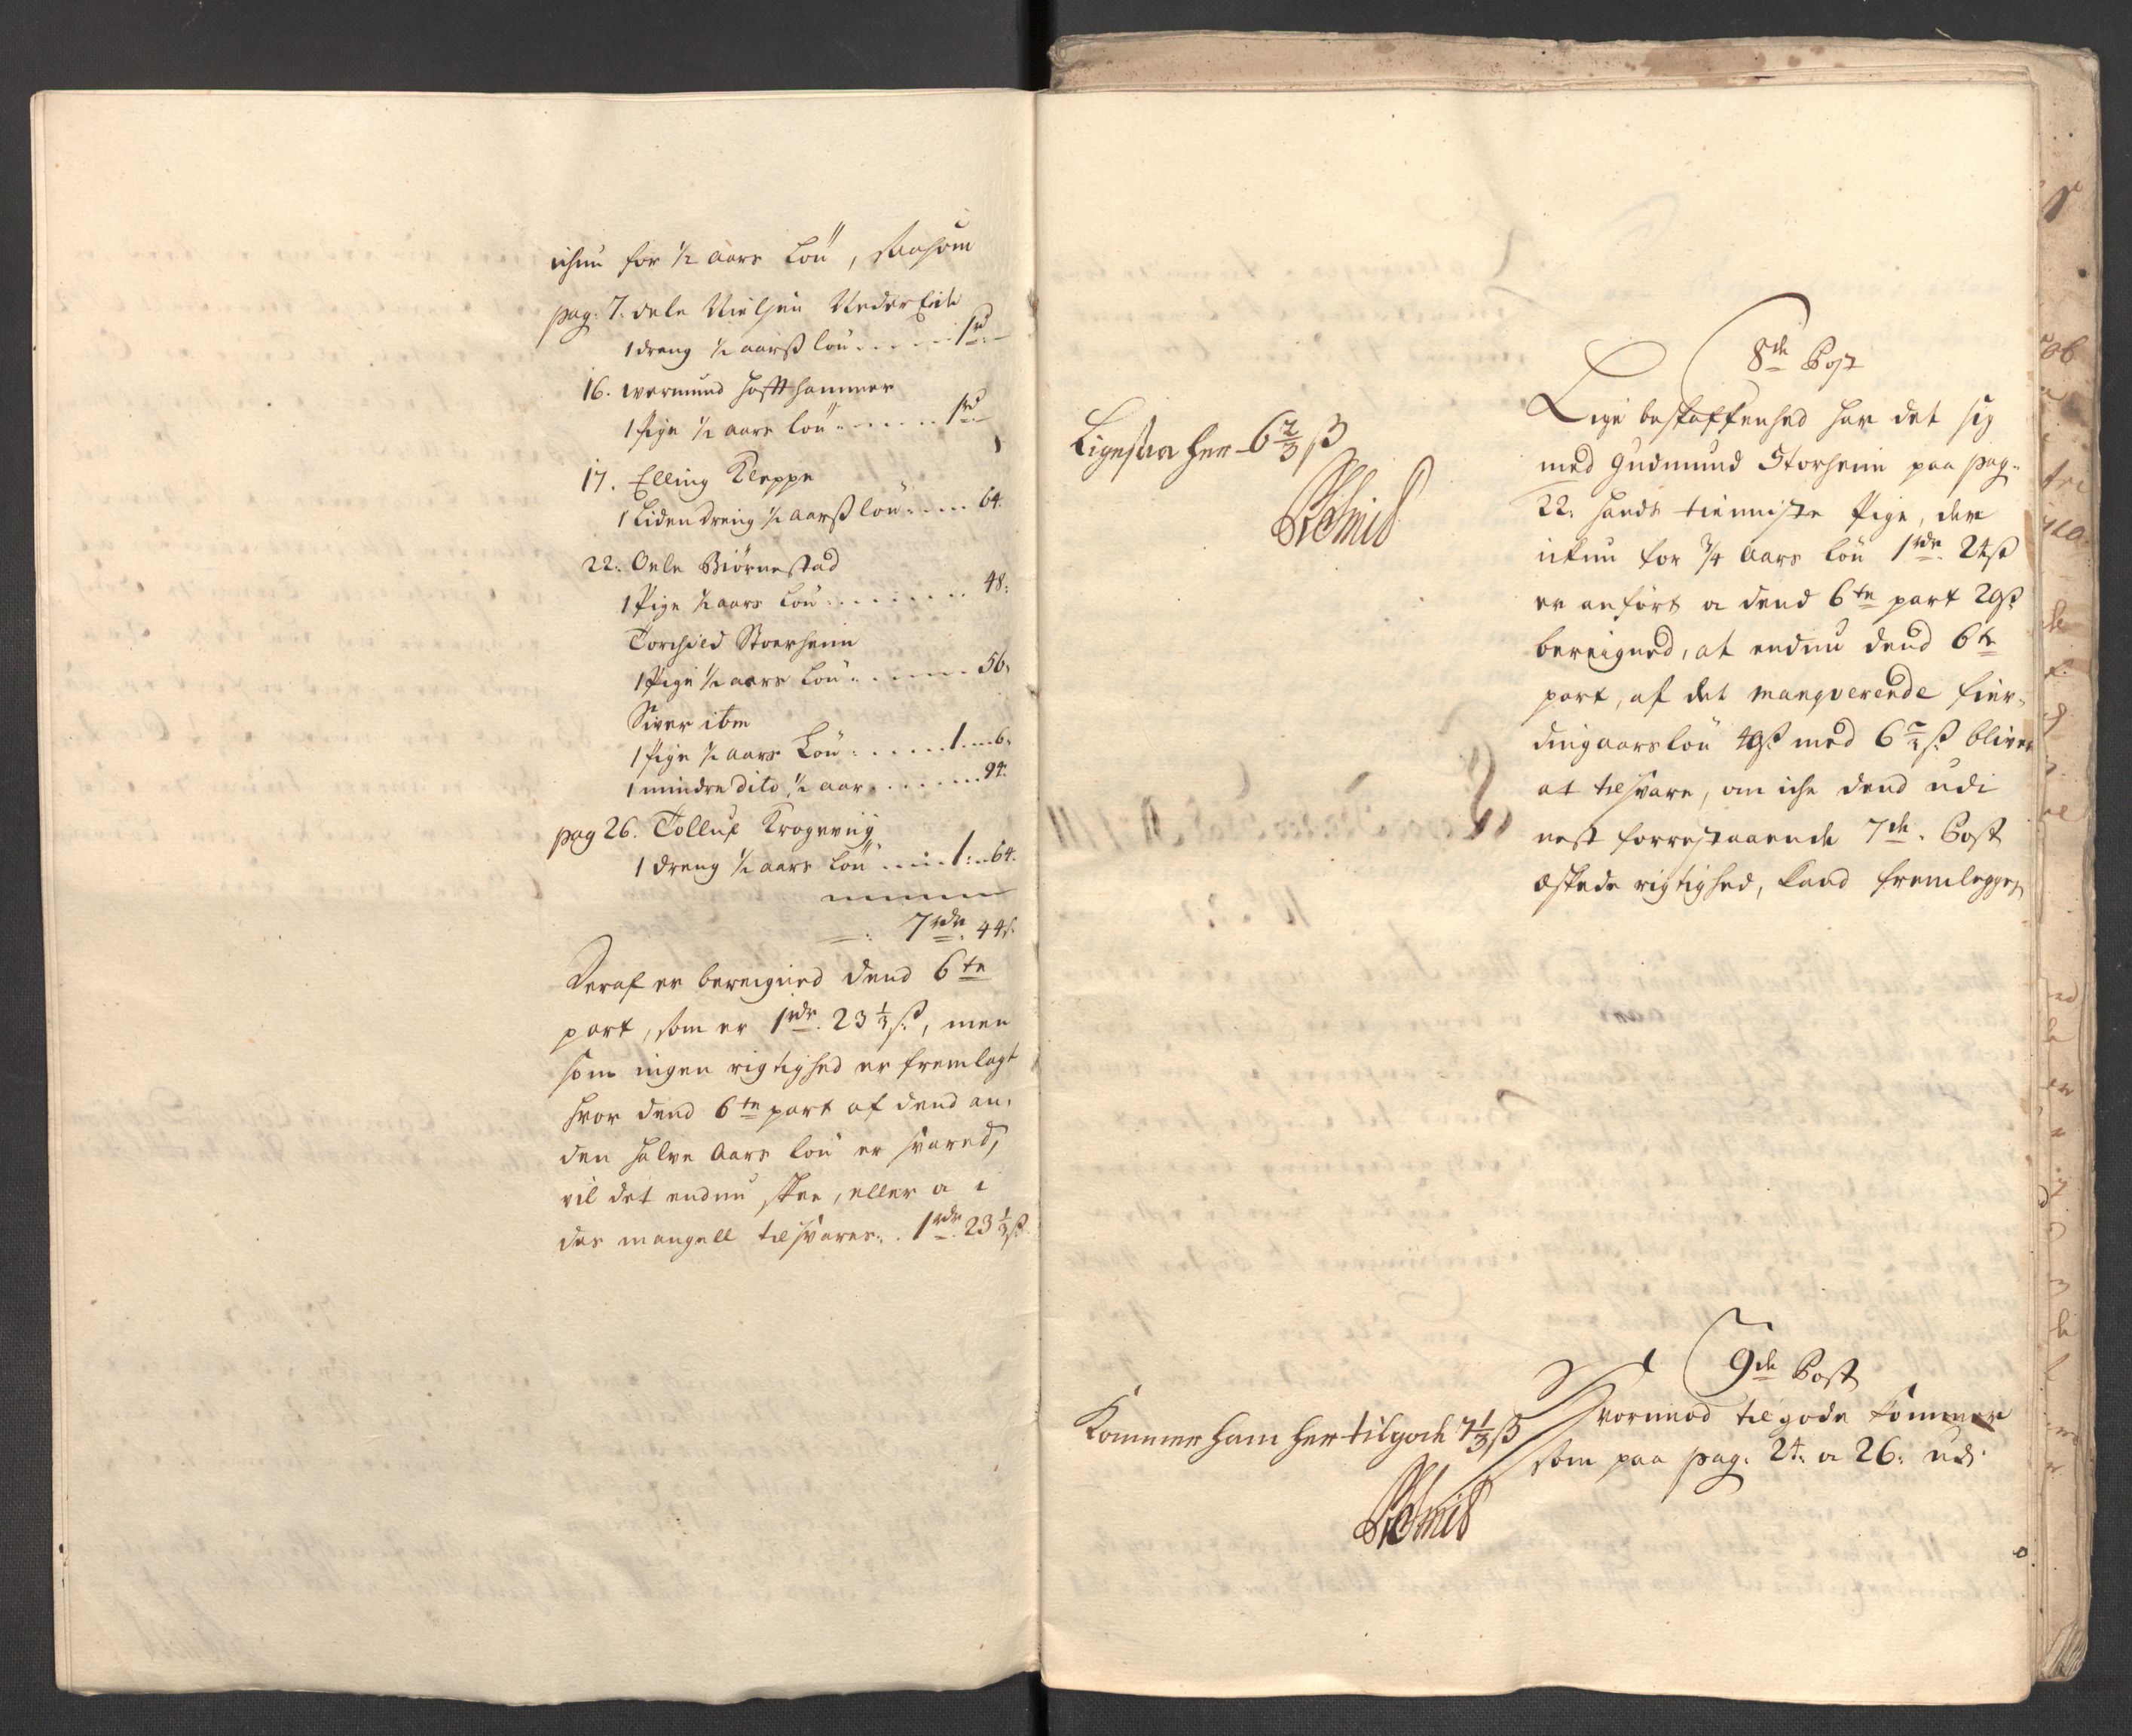 ichun for 1/2 aars Lön, saasom
pag: 7. Oele Nielsen Nedereide
1 dreng 1/2 aarß lön . . . . . 1 rd: —
16. Wermund Hoffthammer
1 Pige 1/2 aars lön . . . . . . 1 rd —
17. Elling Kleppe
1 Liden dreng 1/2 aarß lön . . . . 64.
22. Oele Biørnestad
1 Pige 1/2 aars Lön . . . . . . . . 48:
Torchild Stoerheim
1 Pige 1/2 aars Lön . . . . . . 56:
Siver ibm
1 Pige 1/2 aars Lön . . . . . . 1. — 6.
1 mindre dito, 1/2 aar . . . . . . . 94.
pag 26. Tolluf Krogeviig
1 dreng 1/2 aars Lön . . . . . 1: — 64.
7 rdr. 44 ß.
Deraf er bereigned dend 6te
part, som er 1 rdr. 23 1/3 ß, men
som ingen rigtighed er fremlagt
hvor dend 6te part af dend an-
den halve Aars lön er svared,
vil det endnu skee, eller a i
des mangell tilsvares . . 1 rdr 23 1/3 ß
Ligesaa her 6 2/3 ß
8de Post
Lige beskaffenhed har det sig
med Gudmund Storheim paa pag.
22. hands tienniste Pige, der
ickun for 3/4 Aars lön 1 rdr. 24 ß
er anført a dend 6te part 20 ß
bereigned, at endnu dend 6te
part, af det manqverende fier-
dingaars lön 40 ß med 6 2/3 ß. bliver
at tilsvare, om iche dend udi
nest forrestaaende 7de Post
æskede rigtighed, kand fremlegges
9de Post
Kommer ham her tilgode 7 1/3 ß
Hvorimod til gode kommer
som paa pag. 24. a 26: udi